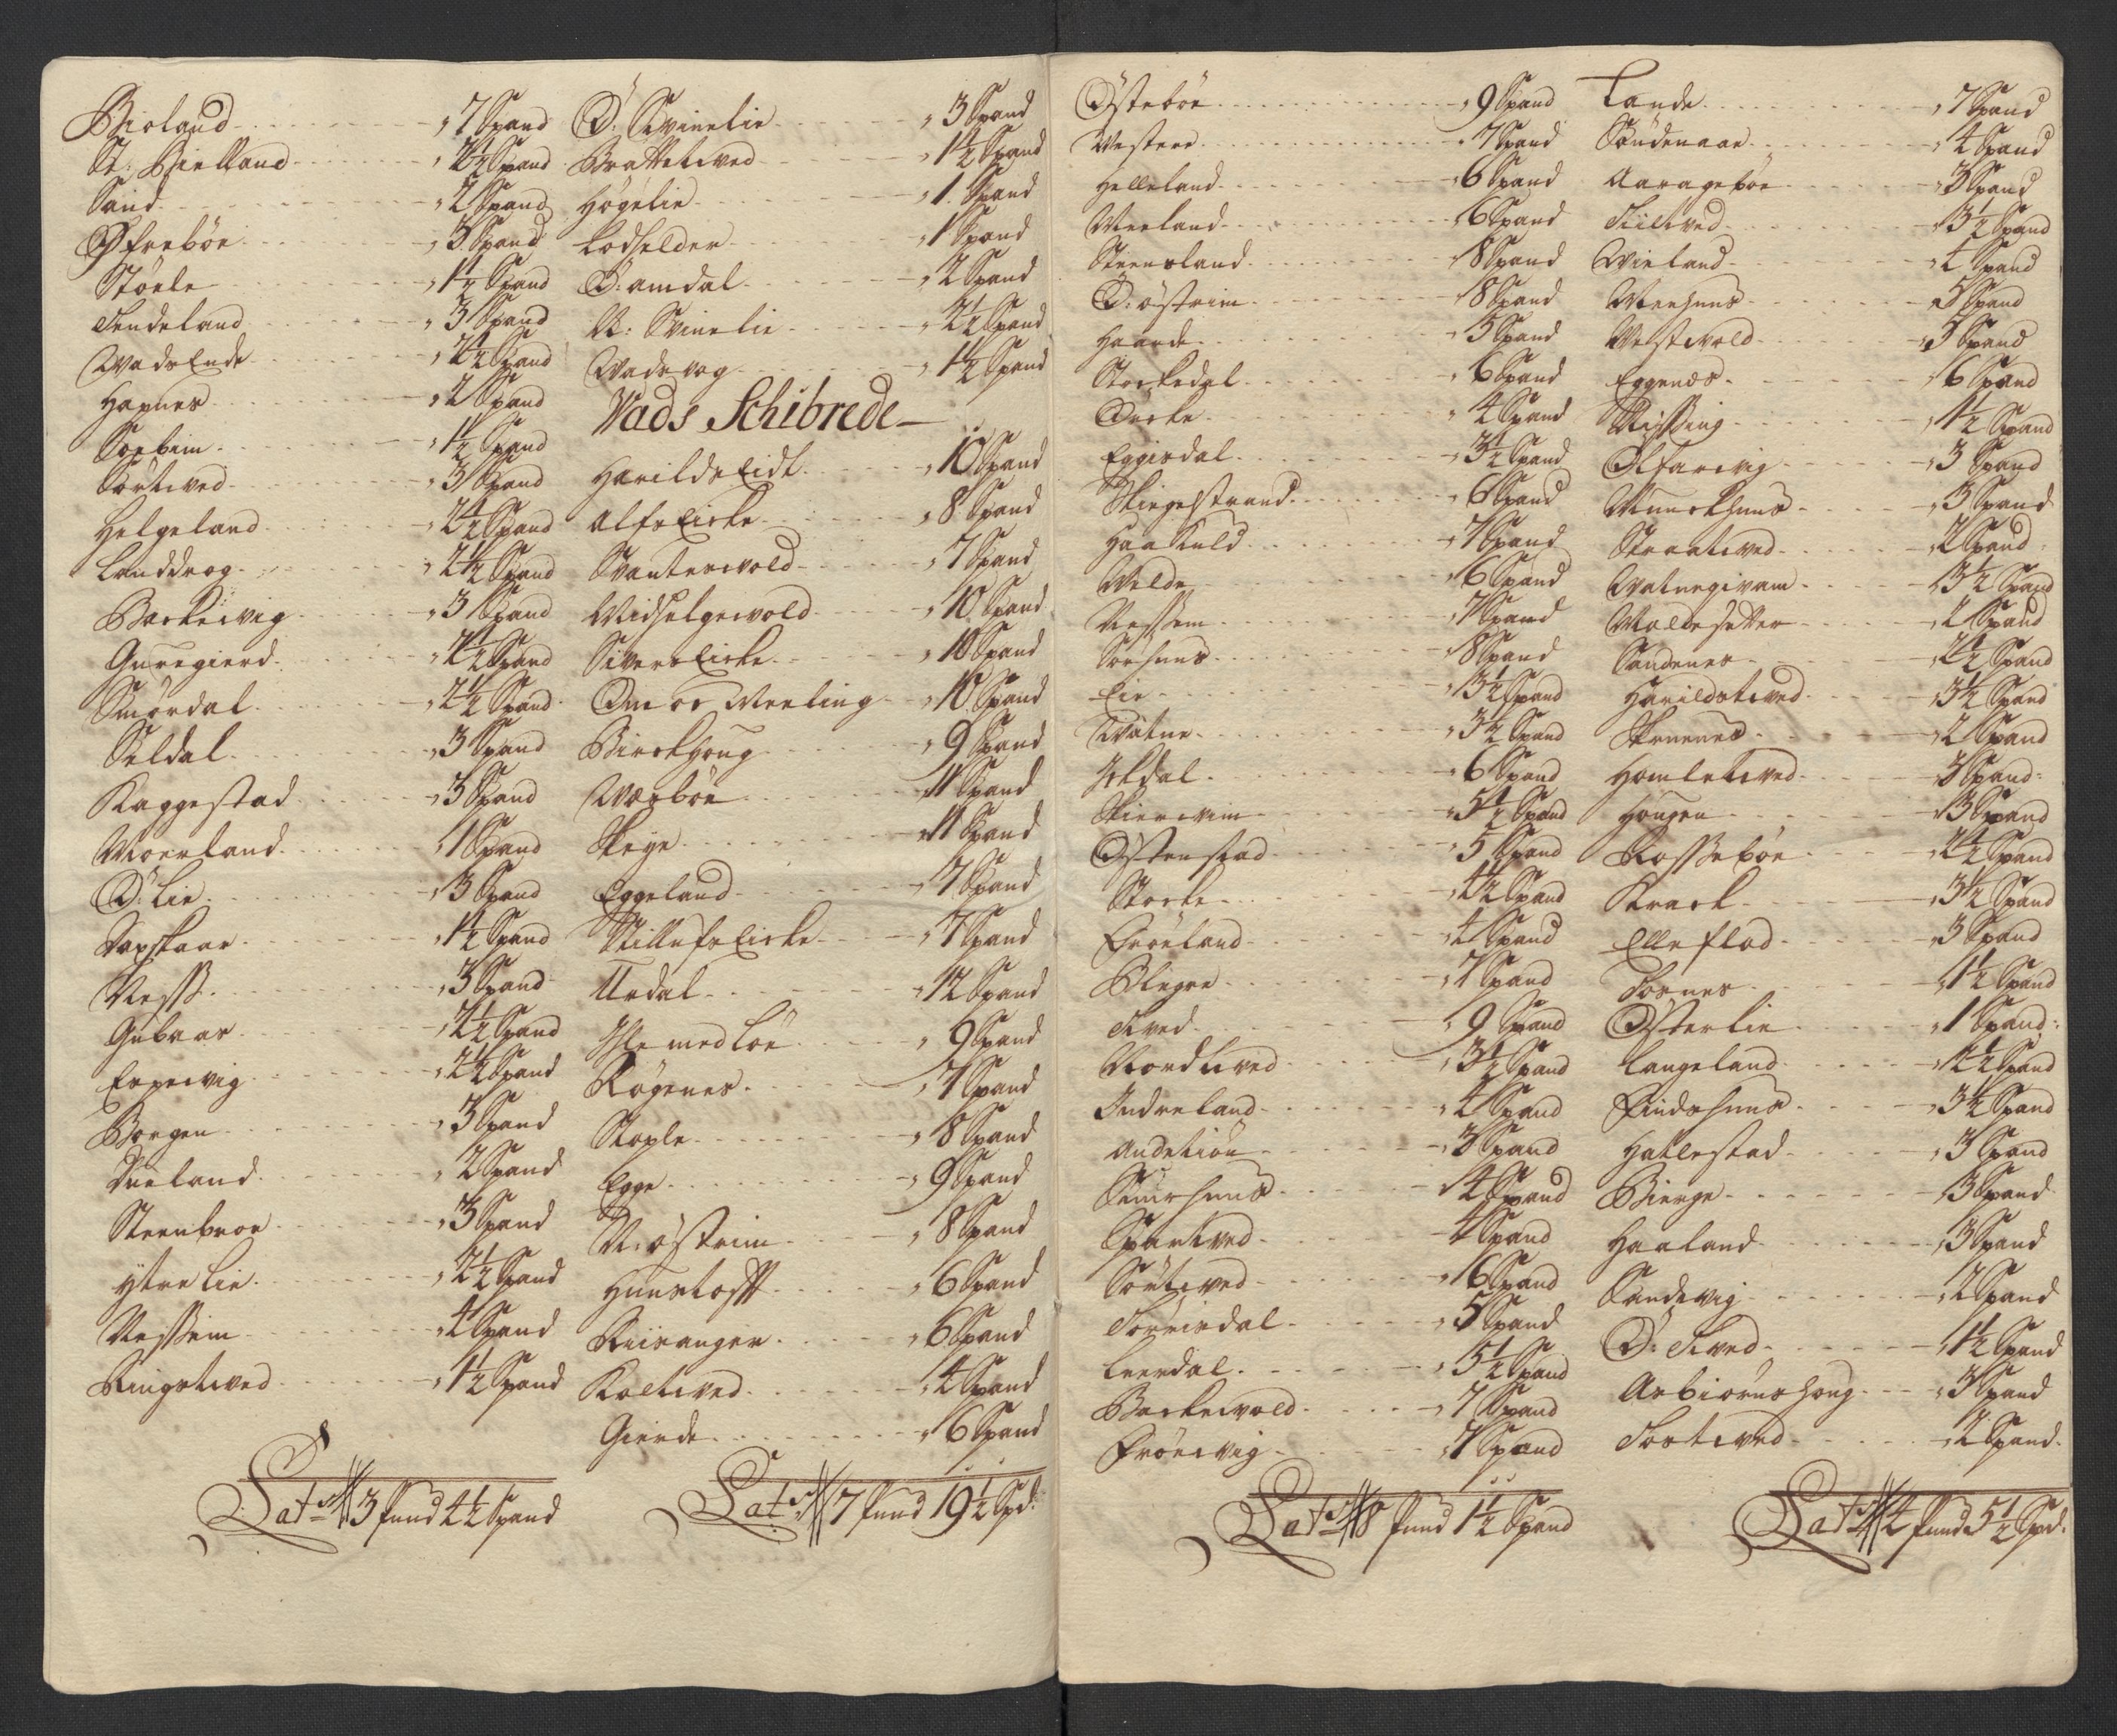 Bioland - 7 Spand
St: Hielland - 2½ Spand
Sand - 2 Spand
Øfrebøe - 3 Spand
Støele - 1½ Spand
Tendeland - 3 Spand
WadsEnde - 2½ Spand
Hapnes - 2 Spand
Soebim - 1½ Spand
Sørtved - 3 Spand
Helgeland - 2½ Spand
Landdrog - 2½ Spand
Barkevig - 3 Spand
Guregierd - 2½ Spand
Smørdal - 2½ Spand
Seldal - 3 Spand
Kaggestad - 3 Spand
Moerland - 1 Spand
Ø: Lie - 3 Spand
Sapskaar - 1½ Spand
Ness - 3 Spand
Gubaas - 2½ Spand
Erpevig - 2½ Spand
Borgen - 3 Spand
Dueland - 2 Spand
Steenbroe - 3 Spand
Ytre Lie - 2½ Spand
Nessem - 4 Spand
Ringstved - 1½ Spand
Lats 3 Pund 4½ Spand
Ø: Svinelie - 3 Spand
Brattetved - 1½ Spand
Høgelie - 1 Spand
Lodhelder - 1 Spand
Ø: amdal - 2 Spand
N: Svinelie - 2½ Spand
Wadsvog - 1½ Spand
Vads Schibrede
HarildsEidt - 10 Spand
AlfsEicke - 8 Spand
Svantesvold - 7 Spand
Midhelgevold - 10 Spand
SiversEicke - 10 Spand
Om oc Meeling - 10 Spand
Birckhoug - 9 Spand
Wærbøe - 11 Spand
Skeye - 11 Spand
Eggeland - 7 Spand
StillufsEicke - 7 Spand
Urdal - 12 Spand
Ihle med Løe - 9 Spand
Røgenes - 7 Spand
Stople - 8 Spand
Egge - 9 Spand
N: østrim - 8 Spand
Hunstofft - 6 Spand
Riisanger - 6 Spand
Koltved - 4 Spand
Gierde - 6 Spand
Lats 7 Pund 19½ Spd:
Østebøe - 9 Spand
Vestere - 7 Spand
Helleland - 6 Spand
Meeland - 6 Spand
Steensland - 8 Spand
Ø: østrim - 8 Spand
Haande - 5 Spand
Stockedal - 6 Spand
Dørke - 4 Spand
Eggisdal - 3½ Spand
Skiegestrand - 6 Spand
Haakuld - 7 Spand
Welde - 6 Spand
Nessem - 7 Spand
Sørhuus - 8 Spand
Lie - 3½ Spand
Tvatne - 3½ Spand
Ickdal - 6 Spand
Skiersvim - 5½ Spand
Østenstad - 5 Spand
Stocke - 4½ Spand
Frøeland - 4 Spand
Blegse - 7 Spand
Tved - 9 Spand
Nordtved - 3½ Spand
Indreland - 4 Spand
Andetiøn - 3 Spand
Smørhuus - 4 Spand
Spørtved - 4 Spand
Sørtved - 6 Spand
Torrisdal - 5 Spand
Leerdal - 5½ Spand
Barkevold - 7 Spand
Frøevig - 7 Spand
Lats 8 Pund 1½ Spand
Lande - 7 Spand
Søndenaae - 4 Spand
Aaragebøe - 3 Spand
Tiiltved - 3½ Spand
Wieland - 4 Spand
Meehuus - 5 Spand
Westvold - 3 Spand
Eggenes - 6 Spand
Nissing - 1½ Spand
Olfarvig - 3 Spand
Munckhuus - 3 Spand
Straatved - 2 Spand
Vatnegivam - 3½ Spand
Moldesetter - 4 Spand
Sandenes - 2½ Spand
Harildstved - 3½ Spand
Skrunes - 2 Spand
Homletved - 3 Spand
Hougen - 3 Spand
Rossebøe - 4½ Spand
Krack - 3½ Spand
Elleflod - 3 Spand
Fosnes - 1½ Spand
Østerlie - 1 Spand
Langeland - 1½ Spand
Findshuus - 3½ Spand
Hatlestad - 3 Spand
Bierge - 3 Spand
Haaland - 3 Spand
Sandevig - 2 Spand
Ø: Tved - 1½ Spand
Asbiørnshoug - 3 Spand
Tostved - 2 Spand
Lats 4 Pund 5½ Spd: